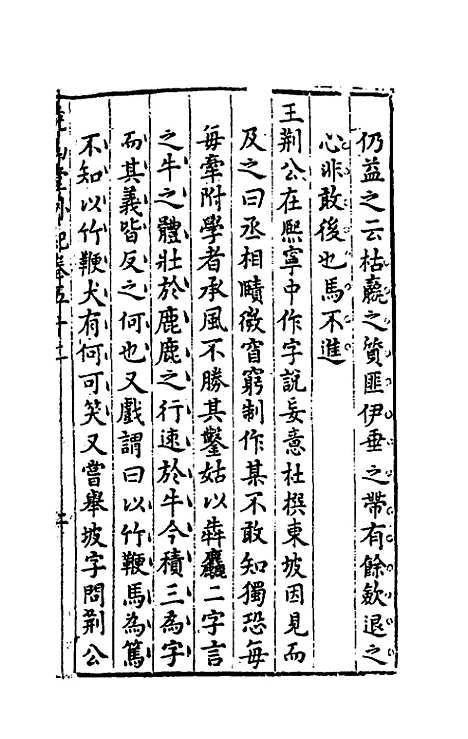 仍益之云枯羸之質匪伊垂之帶有餘歛退之
心非敢後也馬不進
王荆公在熈寧中作字說妄意杜撰東坡因見而
及之曰丞相賾微窅窮制作某不敢知獨恐每
每牽附學者承風不勝其鑿姑以犇麤二字言
之牛之體壯於鹿鹿之行速於牛今積三為字
而其義皆反之何也又戲謂曰以竹鞭馬為篤
不知以竹鞭犬有何可笑又嘗舉坡字問荆公
堂閒記卷五十二